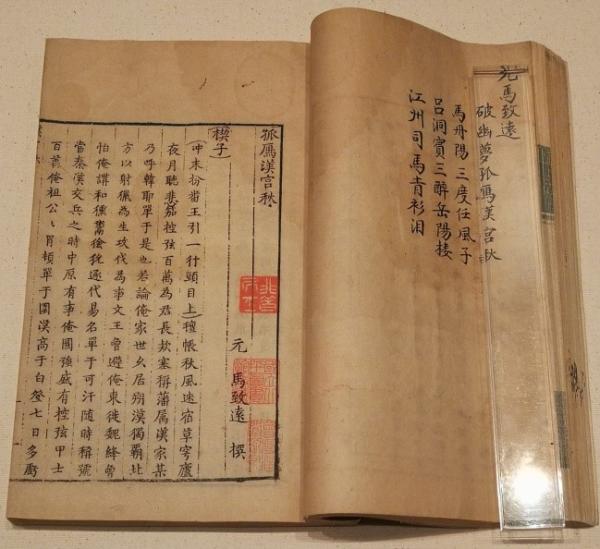 元馬致遠
破幽夢孤鴈漢宮秋
馬丹陽三度任風子
呂洞賓三醉岳陽樓
江州司馬青衫泪
孤鴈漢宮秋
元 馬致遠 撰
楔子
(冲末扮畨王引一行頭目上)氊帳秋風迷宿草穹廬
夜月聽悲笳控弦百萬為君長欵塞稱藩属漢家某
乃呼韓耶單于是也若論俺家世乆居朔漠獨覇北
方以射獵為生攻伐為事文王曾避俺東徙魏絳曾
怕俺講和獯鬻獫狁逐代易名單于可汗随時稱號
當秦漢交兵之時中原有事俺國強盛有控弦甲士
百萬俺祖公〻冒頓單于圍漢高于白登七日多虧